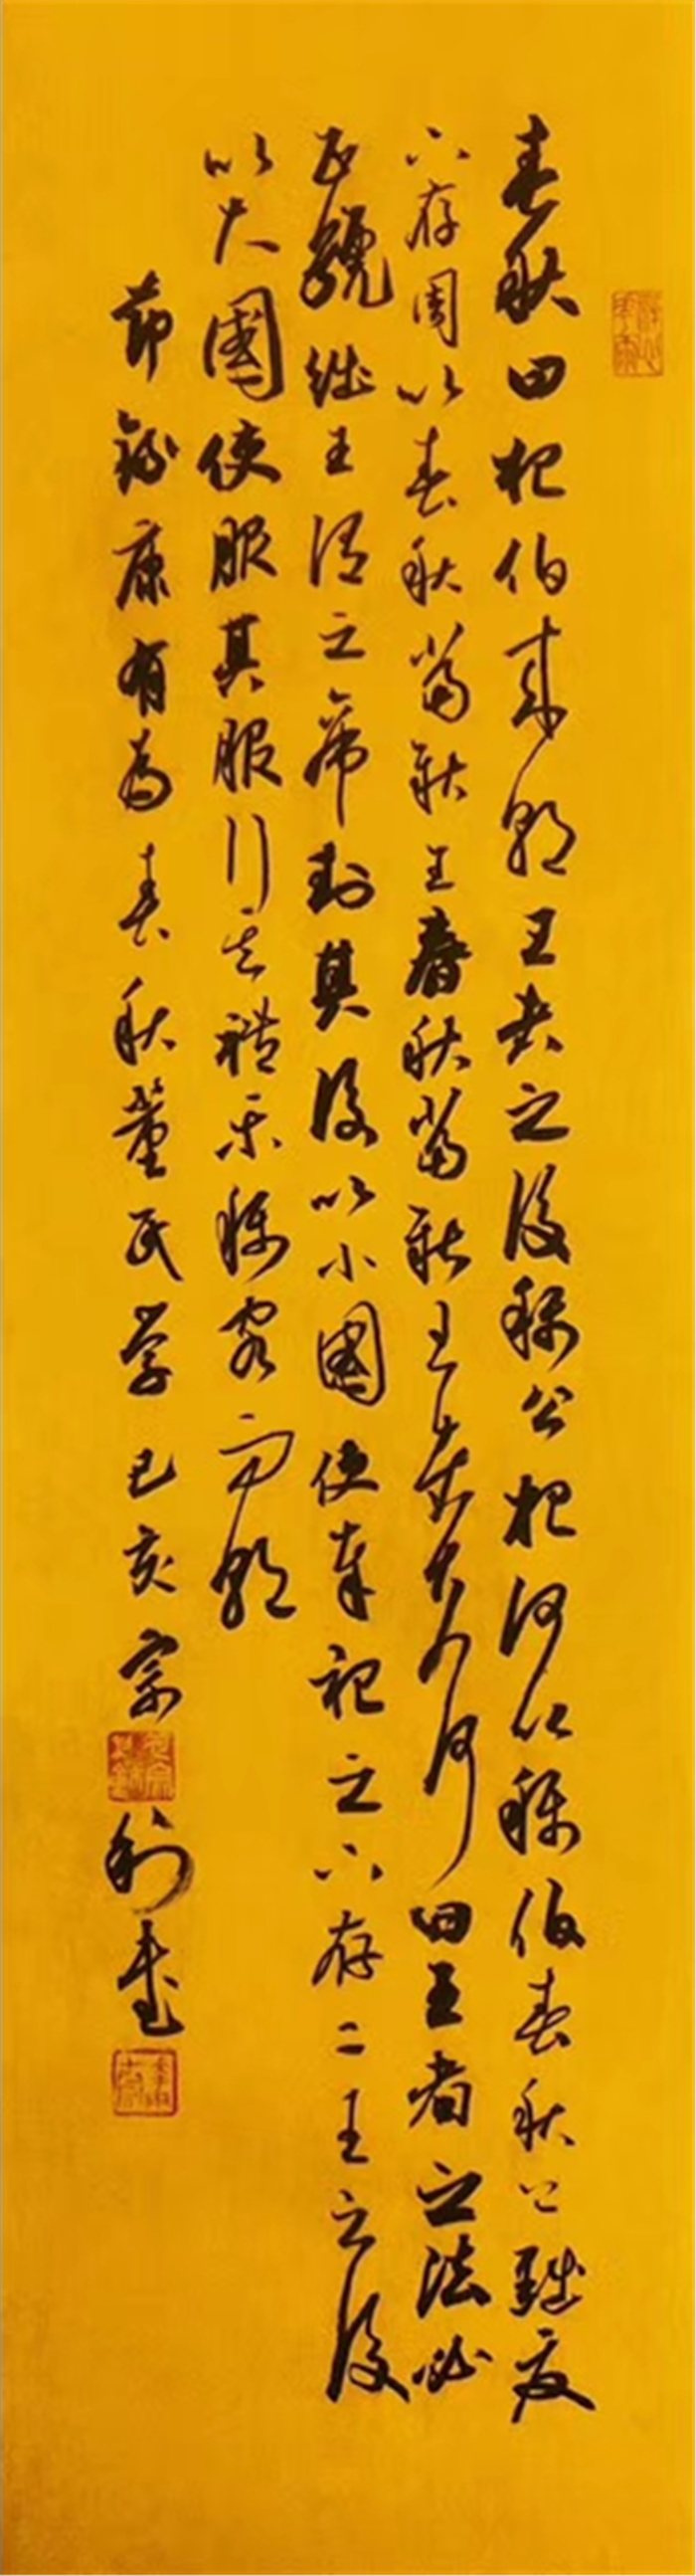 春秋曰杞伯来朝王者之後稱公杞何以稱伯春秋上黜夏
下存周以春秋當新王春秋當新王者奈何曰王者之法必
正號絀王謂之帝封其後以小國使奉祀之下存二王之後
以大國使服其服行其禮樂稱客而朝
節錄康有為春秋董氏学己亥宗利書